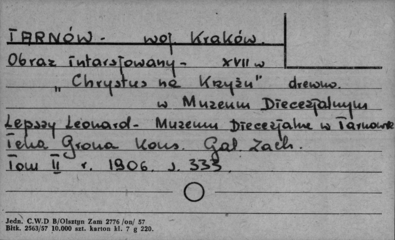 TARNÓW. - woj Kraków.
Obraz intarsjowany - XVII w
„Chrystus na Krzyżu" drewno.
w Muzeum Diecezjalnym
Lepszy Leonard - Muzeum Diecezjalne w Tarnowie
Teka Grona Kons. Gal Zach.
Tom II r. 1906. s. 333.
Jedn. C.W.D B/Olsztyn Zam 2776 /on/ 57
Bltk. 2563/57 10,000 szt. karton kl. 7 g 220.